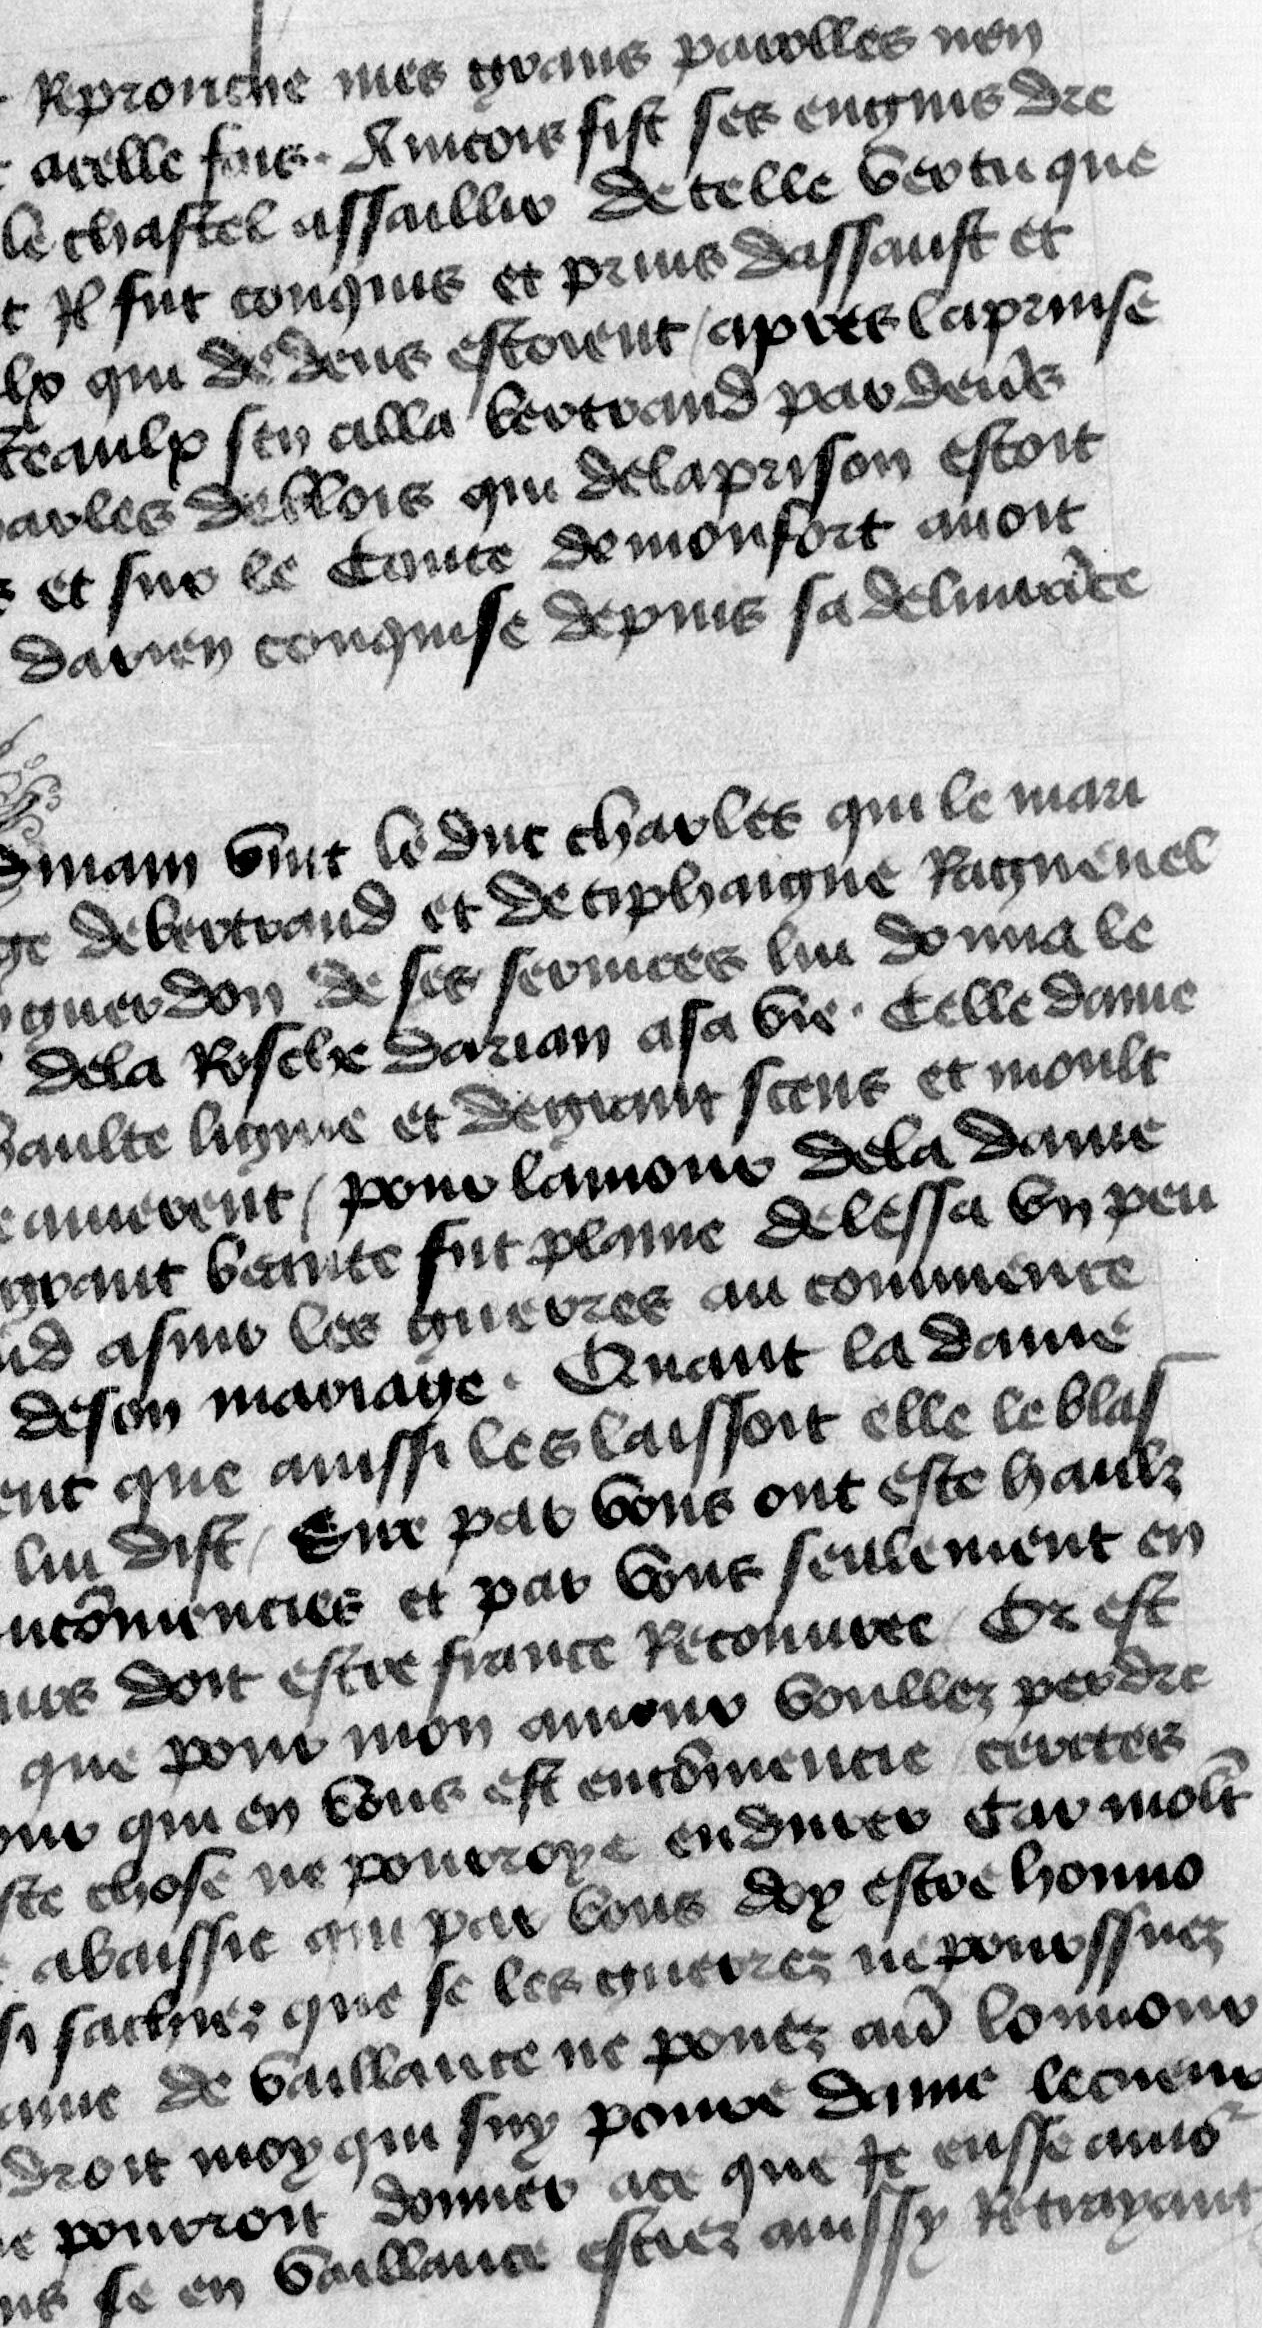 Reprouche mes grans parolles nen
acelle fois. Aincois fist ses engins dre
le chastel assaillir de telle vertu que
t Il fut conquis et prins dassault et
lx qui dedens estoient / apres laprinse
teaulx sen alla bertrand par deuers
harles deblois qui delaprison estoit
s et sur le Conte demonfort auoit
darien conquise depuis sa deliurãce
dmain vint le duc charles qui le mari
ge debertrand et de tiphaigne Raguenel
guerdon de ses seruices lui donna le
dela Rosche darian asa vie. Celle dame
haulte ligniee et degrant scens et moult
eamerent / pour lamour dela dame
grant beaute fut plaine delessa vn peu
nd asuir les guerres au commence
deson mariage. Quant la dame
ent que ainssi les laissoit elle le blas
lui dist / Sire par vous ont este haulz
ncõmencies et par vous seulement en
urs doit estre france Recouuree / Or est
que pour mon amour voullez perdre
our qui en vous est encõmencie certes
ste chose ne pourroye endurer Car molt
abaissie qui par vous doy estre honno
si sachiez que se les guerrez nepourssuez
ame de vaillance ne pouez auõ lonnour
droit moy qui suy poure dame lecueur
ne pourroit donner ace que Je eusse amõ
us se en vaillance estiez ainssy Retrayant